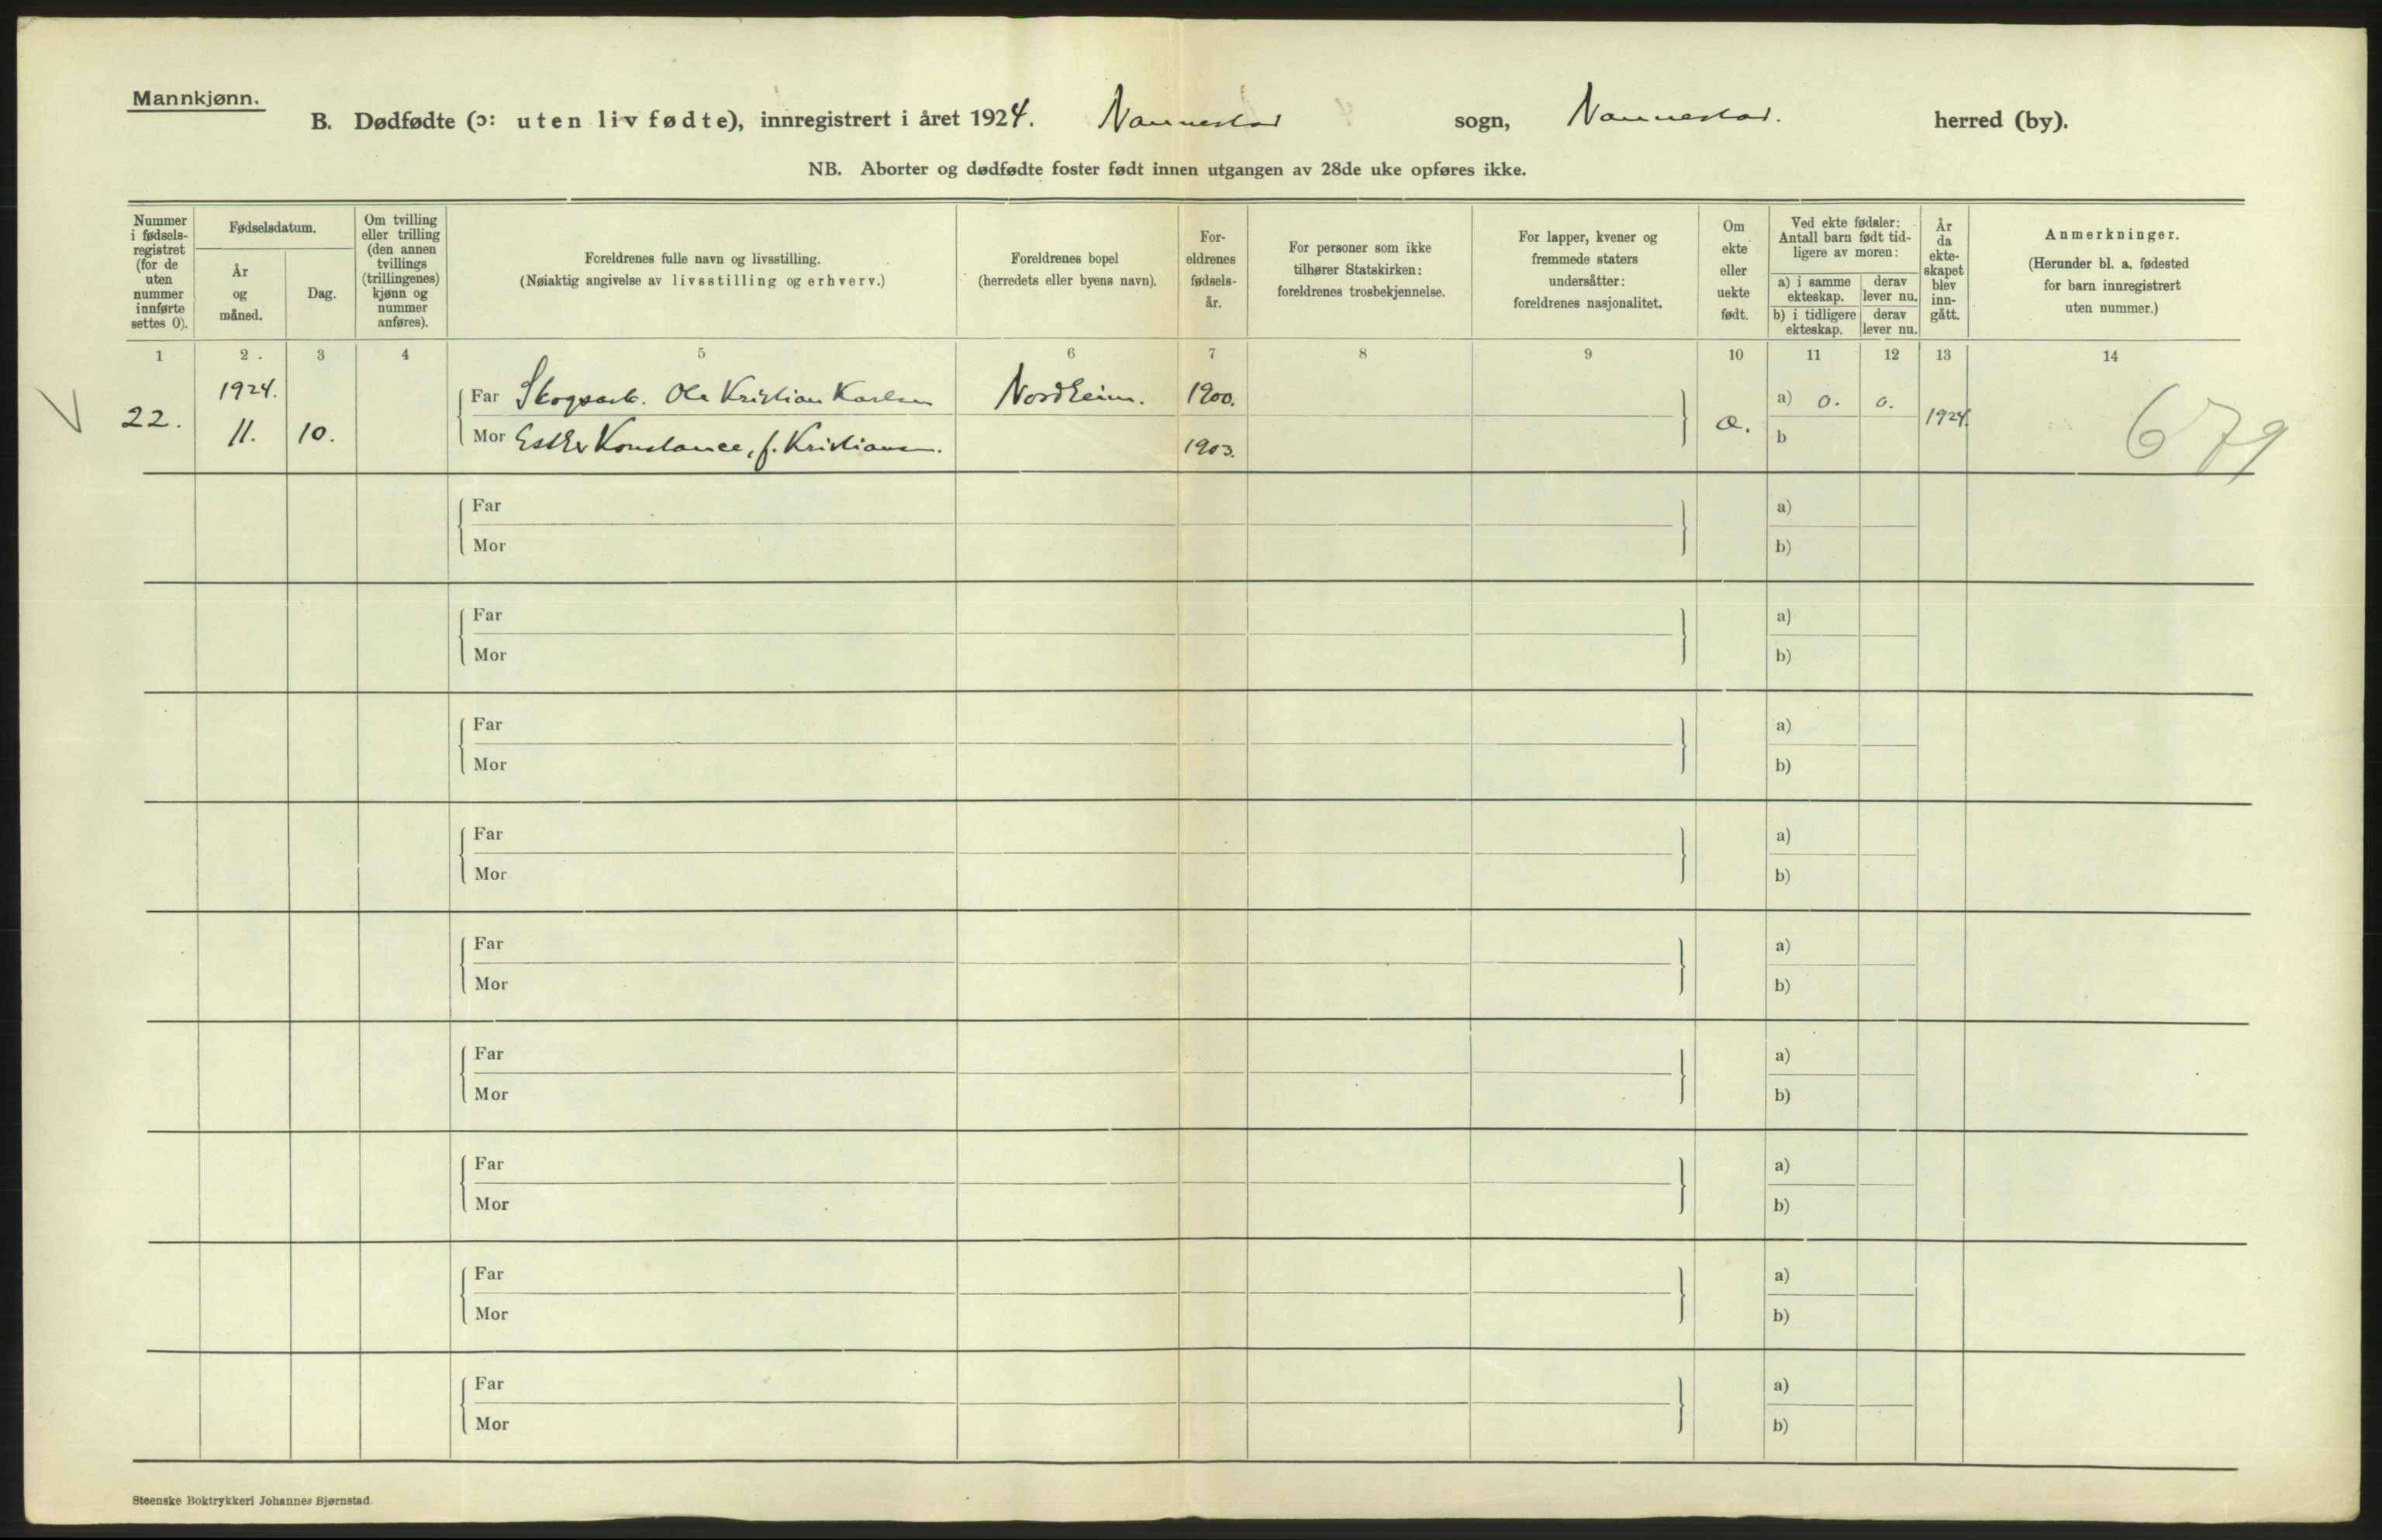 Mannkjønn.
B. Dødfødte (ɔ: uten liv fødte), innregistrert i året 1924. Nannestad sogn, Nannestad. herred (by).
NB. Aborter og dødfødte foster født innen utgangen av 28de uke opføres ikke.
Nummer i fødsels-registret (for de uten nummer innførte settes 0).
Fødselsdatum.
År og måned.
Dag.
Om tvilling eller trilling (den annen tvillings (trillingenes) kjønn og nummer anføres).
Foreldrenes fulle navn og livsstilling.
(Nøiaktig angivelse av livsstilling og erhverv.)
Foreldrenes bopel
(herredets eller byens navn).
For-eldrenes fødsels-år.
For personer som ikke tilhører Statskirken: foreldrenes trosbekjennelse.
For lapper, kvener og fremmede staters undersåtter: foreldrenes nasjonalitet.
Om ekte eller uekte født.
Ved ekte fødsler: Antall barn født tid-ligere av moren:
a) i samme ekteskap.
derav lever nu.
b) i tidligere ekteskap.
derav lever nu.
År da ekte-skapet blev inn-gått.
Anmerkninger.
(Herunder bl. a. fødested for barn innregistrert uten nummer.)
1 2. 3 4 5 6 7 8 9 10 11 12 13 14
V 22. 1924. 11. 10.
Far Skogsarb. Ole Kristian Karlsen Nordheim. 1900.
Mor Esther Konstance, f. Kristiansen. 1903.
æ. a) 0. 0. 1924. 679
b
Far a)
Mor b)
Far a)
Mor b)
Far a)
Mor b)
Far a)
Mor b)
Far a)
Mor b)
Far a)
Mor b)
Far a)
Mor b)
Far a)
Mor b)
Far a)
Mor b)
Steenske Boktrykkeri Johannes Bjørnstad.